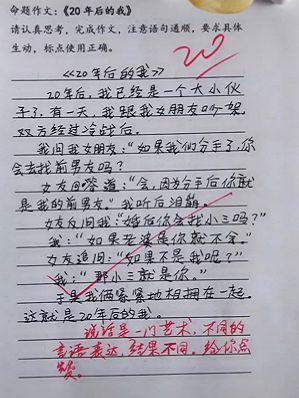 命题作文：《20年后的我》
请认真思考，完成作文，注意语句通顺，要求具体
生动，标点使用正确。
20
《20年后的我》
20年后，我已经是一个大小伙
子了，有一天，我跟我女朋友吵架，
双方经过冷战后。
我问我女朋友："如果我们分手了，你
会去找前男友吗？
女友回答道："会，因为分手后你就
是我的前男友。"我听后泪崩。
女友反问我："婚后你会找小三吗？"
我："如果老婆是你就不会。"
女友追问："如果不是我呢？"
我："那小三就是你。"
于是我俩紧紧地相拥在一起。
这就是20年后的我。
说话是一门艺术，不同的
言语表达，结果不同。给你点
赞。